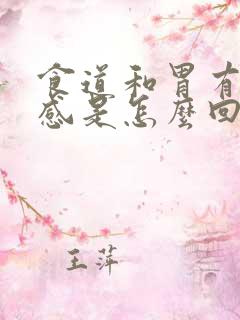 食道和胃有
感是怎麼回
王萍